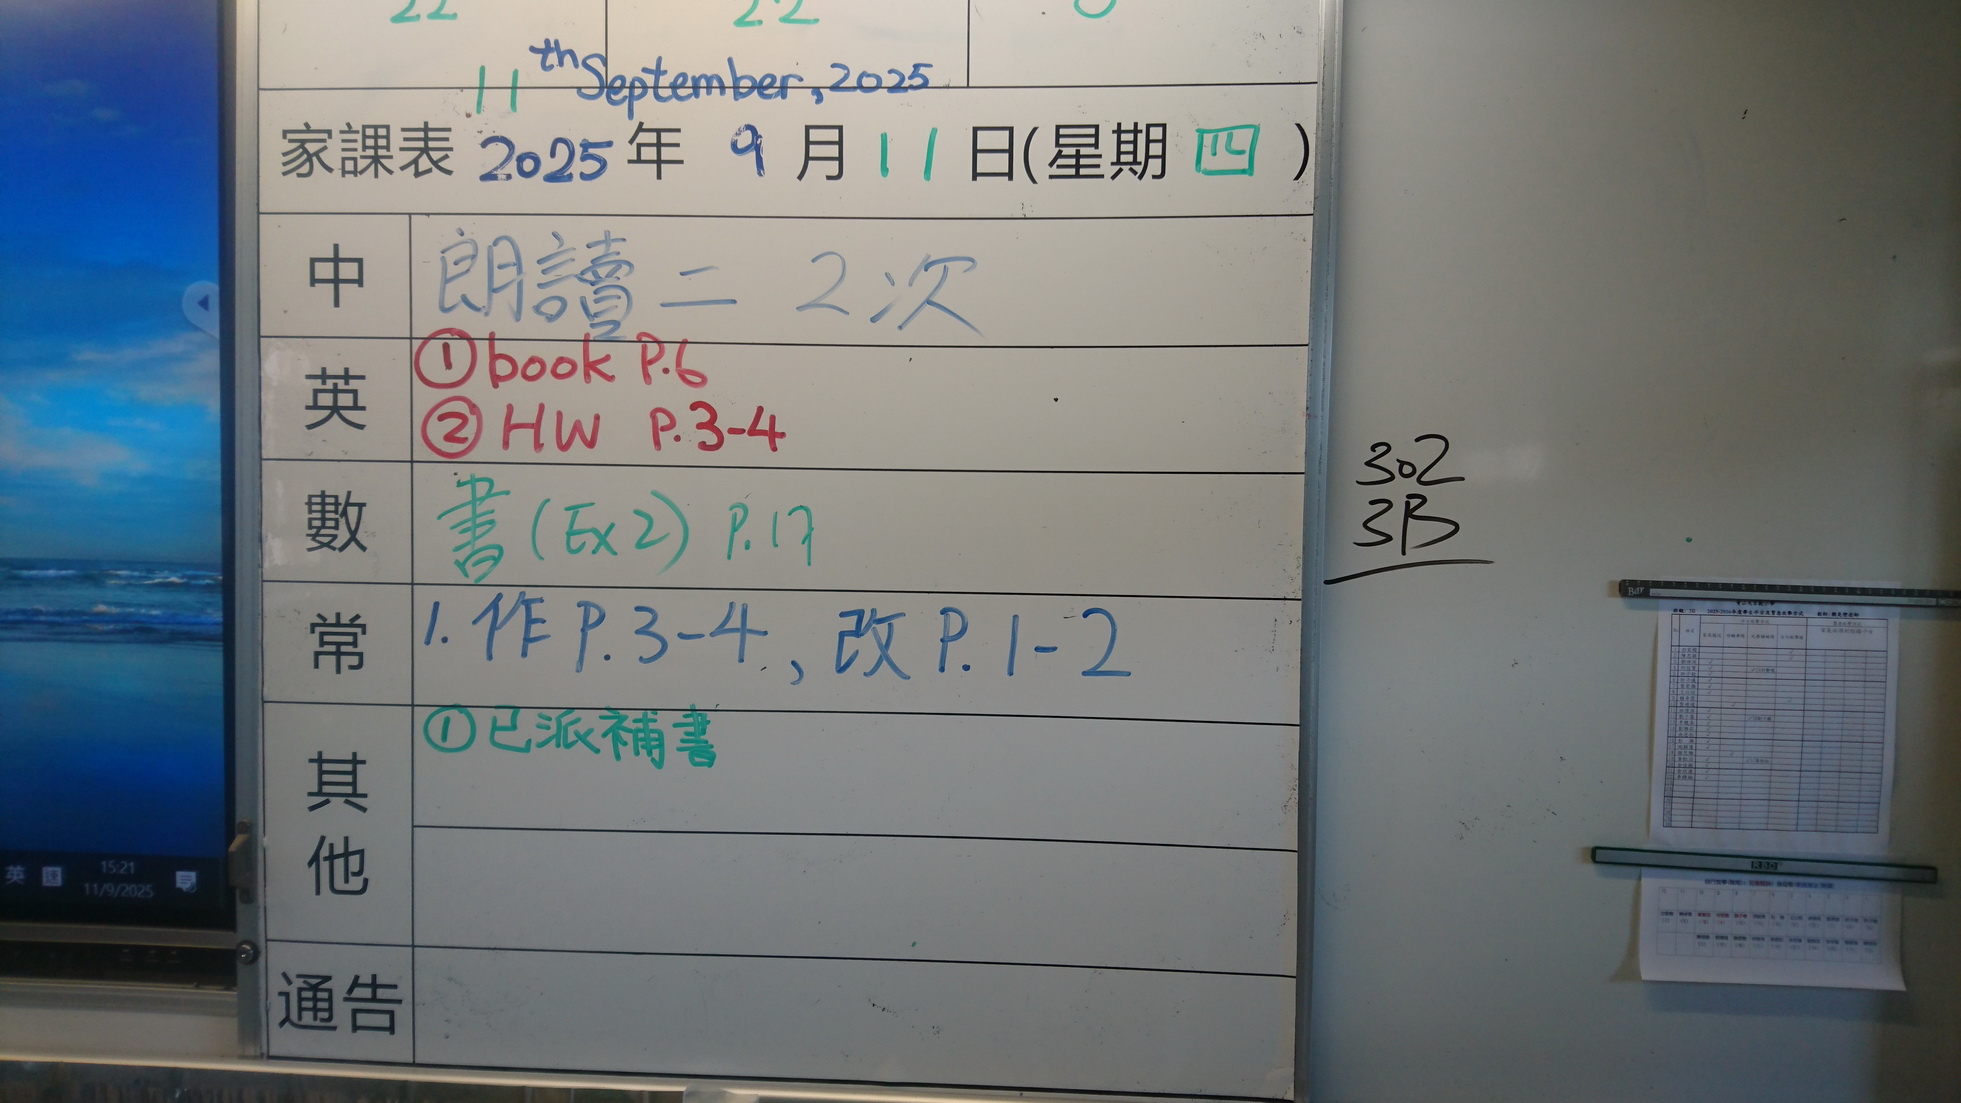 22 22 0
11th September, 2025
家課表 2025年 9月11日(星期四)
中 朗讀二 2次
英 ①book P.6
②HW P.3-4
數 書(Ex2) P.17
常 1.作P.3-4, 改P.1-2
其他 ①已派補書
通告
302
3B
英
15:21
11/9/2025